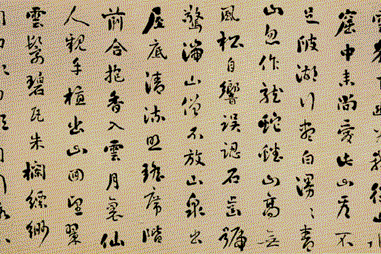 窟中來尚愛此山看不
足陂湖行盡白漫漫青
山忽作龍蛇盤山高無
風松自響誤認石齒號
驚湍山僧不放山泉出
屋底清池照瑤席階
前合抱香入雲月裏仙
人親手植出山回望翠
雲鬟碧瓦朱欄縹緲